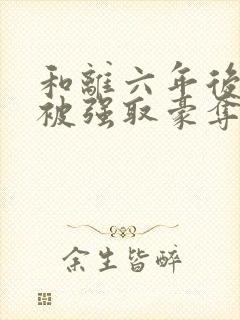 和離六年後
被强取豪奪
余生皆醉